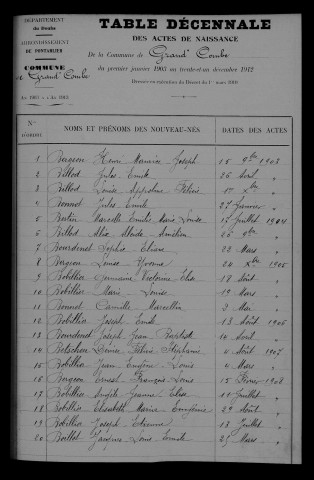 DÉPARTEMENT
du Doubs
ARRONDISSEMENT
DE PONTARLIER
COMMUNE
de Grand' Combe
TABLE DÉCENNALE
DES ACTES DE NAISSANCE
De la Commune de Grand' Combe
du premier janvier 1903 au trente-et-un décembre 1912
Nos
D'ORDRE
NOMS ET PRÉNOMS DES NOUVEAU-NÉS
DATES DES ACTES
1 Bergeon Henri Maurice Joseph 15 9bre 1903
2 Billod Jules Emile 26 Avril
3 Billod Louise
4 Bonnet Jules Emile 27 Janvier
5 Bertin Marcelle Emilie Marie Louise 17 Juillet 1904
6 Billod Alix 26 9bre
7 Bourdenet Sophie 22 Mars
8 Bergeon Louise Yvonne 24 Xbre 1905
9 Bobillier Germaine Victorine Elise 18 Août
10 Bobillier Marie Louise 19 Mars
11 Bonnet Camille Marcellin 2 Mai
12 Bobillier Joseph Emile 13 Août 1906
13 Bourdenet Joseph Jean Baptiste 14 Avril
14 Stéphanie 4 Août 1907
15 Bobillier Jean Eugène Louis 4 Mars
16 Bergeon Ernest François Louis 15 Février 1908
17 Bobillier Angèle Jeanne Elise 11 Juillet
18 Bobillier Elisabeth Maria Eugénie 29 Août
19 Bobillier Joseph Etienne 13 Juillet
20 Jacques Louis Emile 25 Mars